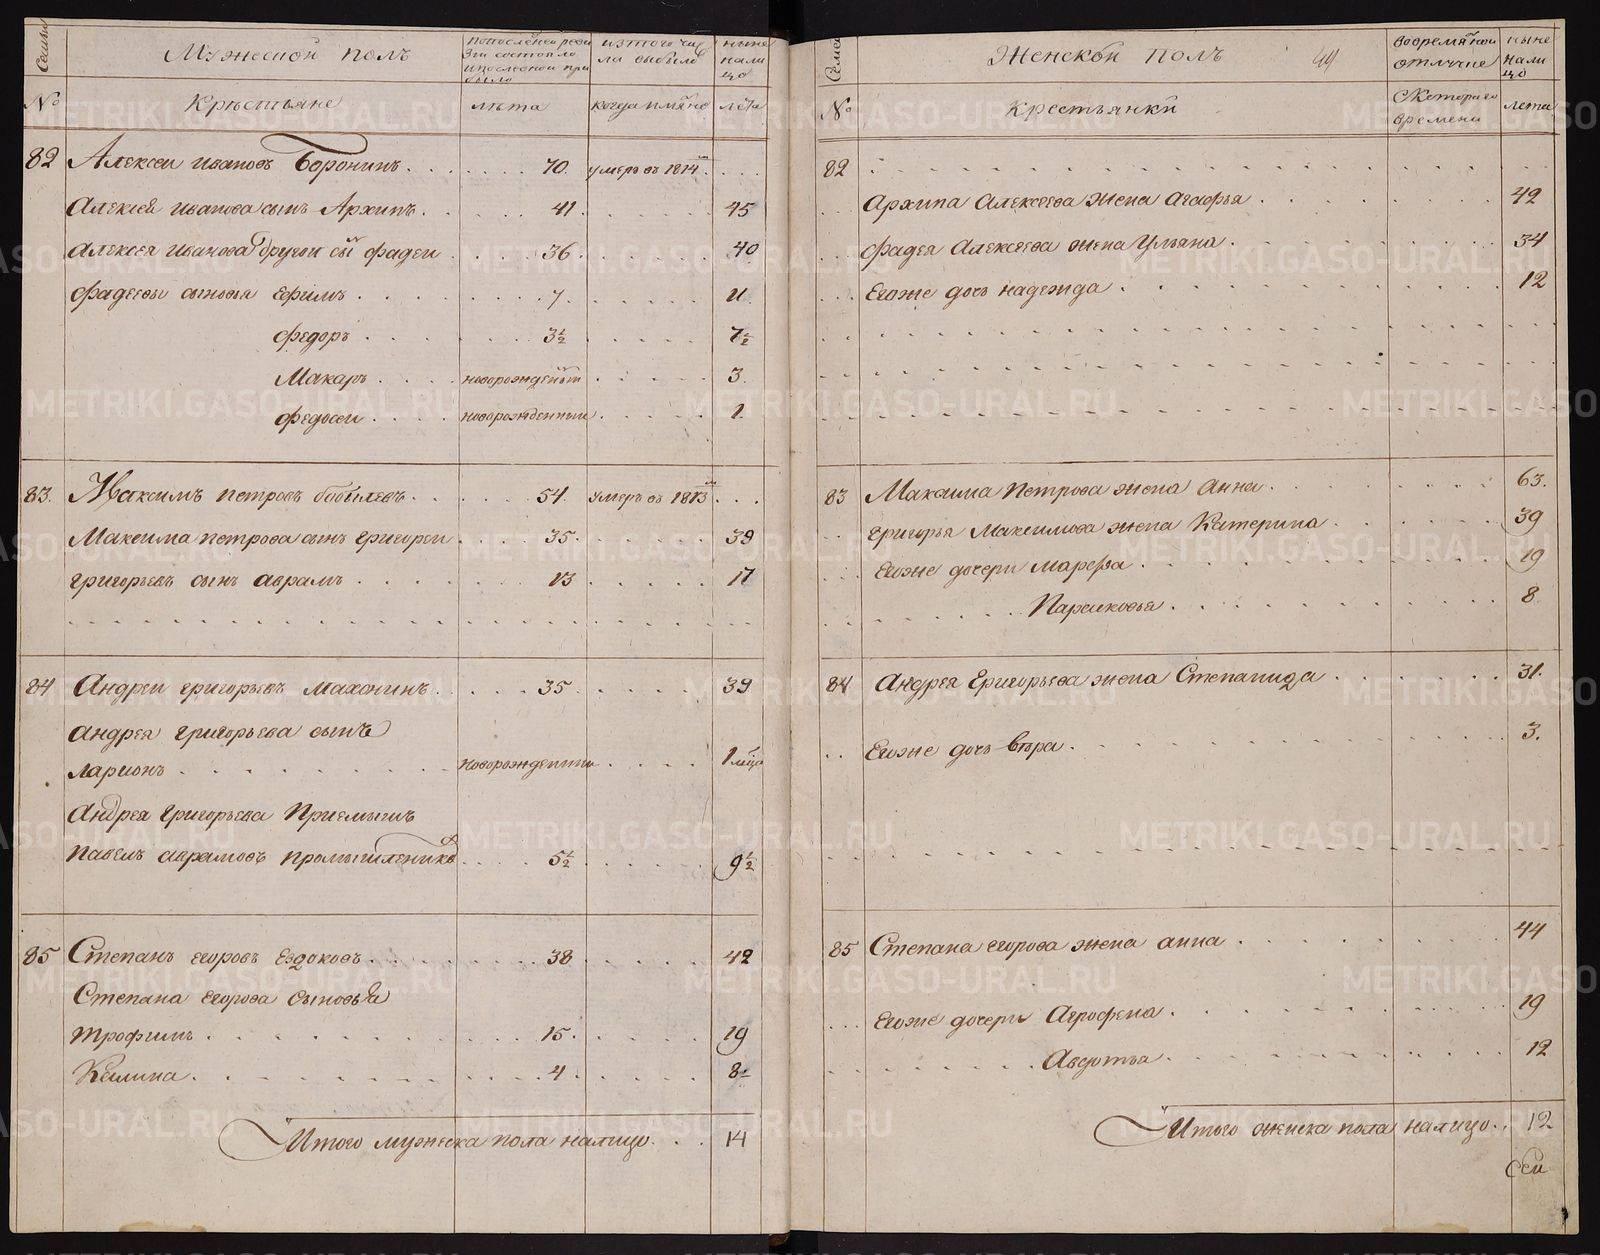 Семьи
Мужескои полъ
По последнеи реви
зiи состояло
и последнои при
было
Изтого чис
ла выбыло
ныне
нали
цо
№
Крѣстьяне
лѣта
когда имяно
лѣта
82 Алексеи Ивановъ Боронинъ 70 умеръ въ 1814м
Алексея Иванова сынъ Архипъ 41 45
Алексея Иванова другои сынъ Фадеи 36 40
Фадеевы сыновья Ефимъ 7 11
Федоръ 3½ 7½
Макаръ новорожденыи 3
Федосеи новорожденныи 1
83 Максимъ Петровъ Бобылевъ 54 умеръ въ 1813м
Максима Петрова сынъ Григореи 35 39
Григорьевъ сынъ Аврамъ 13 17
84 Андреи Григорьевъ Махонинъ 35 39
Андрея Григорьева сынъ
Ларионъ новорожденныи 1 мцъ
Андрея Григорьева Приемышъ
Павелъ Аврамовъ Промышлениковъ 5½ 9½
85 Степанъ Егоровъ Ездоковъ 38 42
Степана Егорова сыновья
Трофимъ 15 19
Келина 4 8
Итого мужеска пола налицо 14
Семеи
Женскои полъ
44
Во времяннои
отлучке
ныне
нали
цо
№
Крестьянки
С котораго
времени
лета
82
Архипа Алексеева жена Агафья 42
Фадея Алексеева жена Ульяна 34
Егоже дочь Надежда 12
83 Максима Петрова жена Анна 63
Григорья Максимова жена Катерина 39
Егоже дочери Марфа 19
Парасковья 8
84 Андрея Григорьева жена Степанида 31
Егоже дочь Вѣра 3
85 Степана Егорова жена Анна 44
Егоже дочери Агрофена 19
Авдотья 12
Итого женска пола налицо 12
Сеи
METRIKI.GASO-URAL.RU